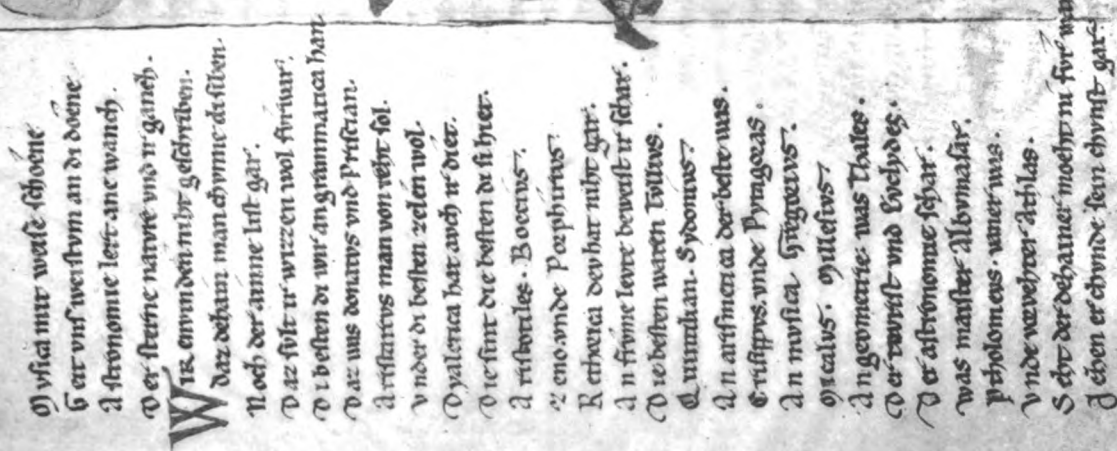 Mvsica mit weise schoene
Geit vns weistvm an di doene
Astronomie lert ane wanch.
Der sterne natvre vnd ir ganch.
WIR envinden niht geschriben.
Daz dehain man chvnne di siben.
Noch der ainne list gar.
Daz svlt ir wizzen wol fvrwar.
Di besten di wir an grammatica han
Daz was donatvs vnd Priscian.
Aristarcvs man von reht sol.
vnder di besten zelen wol.
Dyaletica hat avch ir dier.
Die sint die besten di si hiet.
Aristotiles. Boecivs.
Zeno. vnde Porphirivs.
Rethorica dev hat niht gar.
An frvme levte beweist ir schar.
Die besten waren Tvllivs.
Quintilian. Sydonivs.
An arismetica der beste was.
Crisippvs. vnde Pytagoras.
An mvsica Gregorivs.
Micalvs. Millesivs.
An geometrie was Thales.
Der vnd Evclydes.
Der astronomie schar.
was maister Albvmasar.
ptholomeus. vaner was.
vnde Athlas.
Seht der dehainer moeht ni fvr
Jehen er chvnde sein chvnst gar.